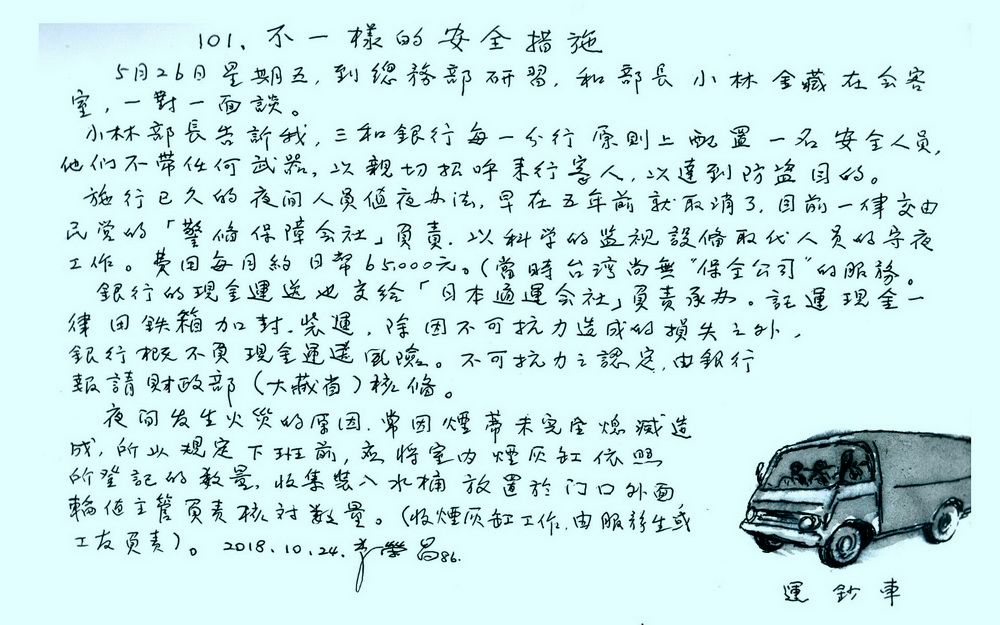 101. 不一樣的安全措施
5月26日星期五, 到總務部研習, 和部長 小林金藏在会客
室, 一對一面談。
小林部長告訴我, 三和銀行每一分行 原則上配置一名安全人員,
他们不带任何武器, 以親切招呼来行客人, 以達到防盗目的。
施行已久的夜间人员值夜办法, 早在五年前就取消了, 目前一律交由
民党的「警俻保障会社」負責. 以科学的监視設俻取代人员的守夜
工作。費用每月約日幣65,000元。(當時台湾尚無"保全公司"的服務。
銀行的現金運送也交给「日本通運会社」負責承办。託運現金一
律用鉄箱加封.装運, 除因不可抗力造成的損失之外,
銀行概不負現金運送風險。不可抗力之認定, 由銀行
報請財政部(大藏省)核俻。
夜间发生火災的原因, 常因煙蒂未完全熄滅造
成, 所以規定下班前, 应將室内煙灰缸依照
所登記的数量, 收集裝入水桶放置於门口外面
輪值主管負責核对数量。(收煙灰缸工作, 由服務生或
工友負責)。 2018.10.24. 昌86.
運鈔車